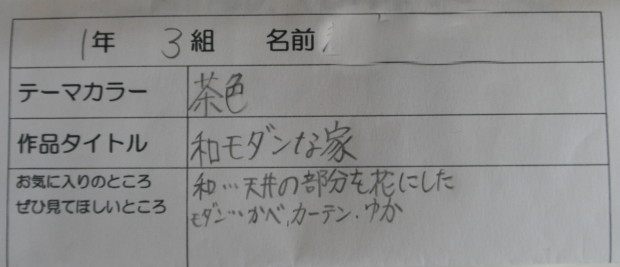 1年 3組 名前
テーマカラー 茶色
作品タイトル 和モダンな家
お気に入りのところ 和…天井の部分を花にした
ぜひ見てほしいところ モダン…かべ,カーテン.ゆか